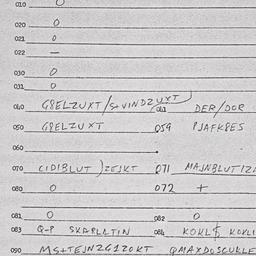 010 O
020 O
021 O
022 —
030 O
031 O
040 G8ELZUXT/S+VINDZUXT 041 DER/DOR
050 G8ELZUXT 059 PJAFK8ES
060
070 CIDIBLUT)ZEJKT 071 MAJNBLUTIZ
080 O 072 +
081 O 082 O
083 Q-P SKARLATIN 084
090 MS+TEJNZGIZOKT QMAXDOSCULLE